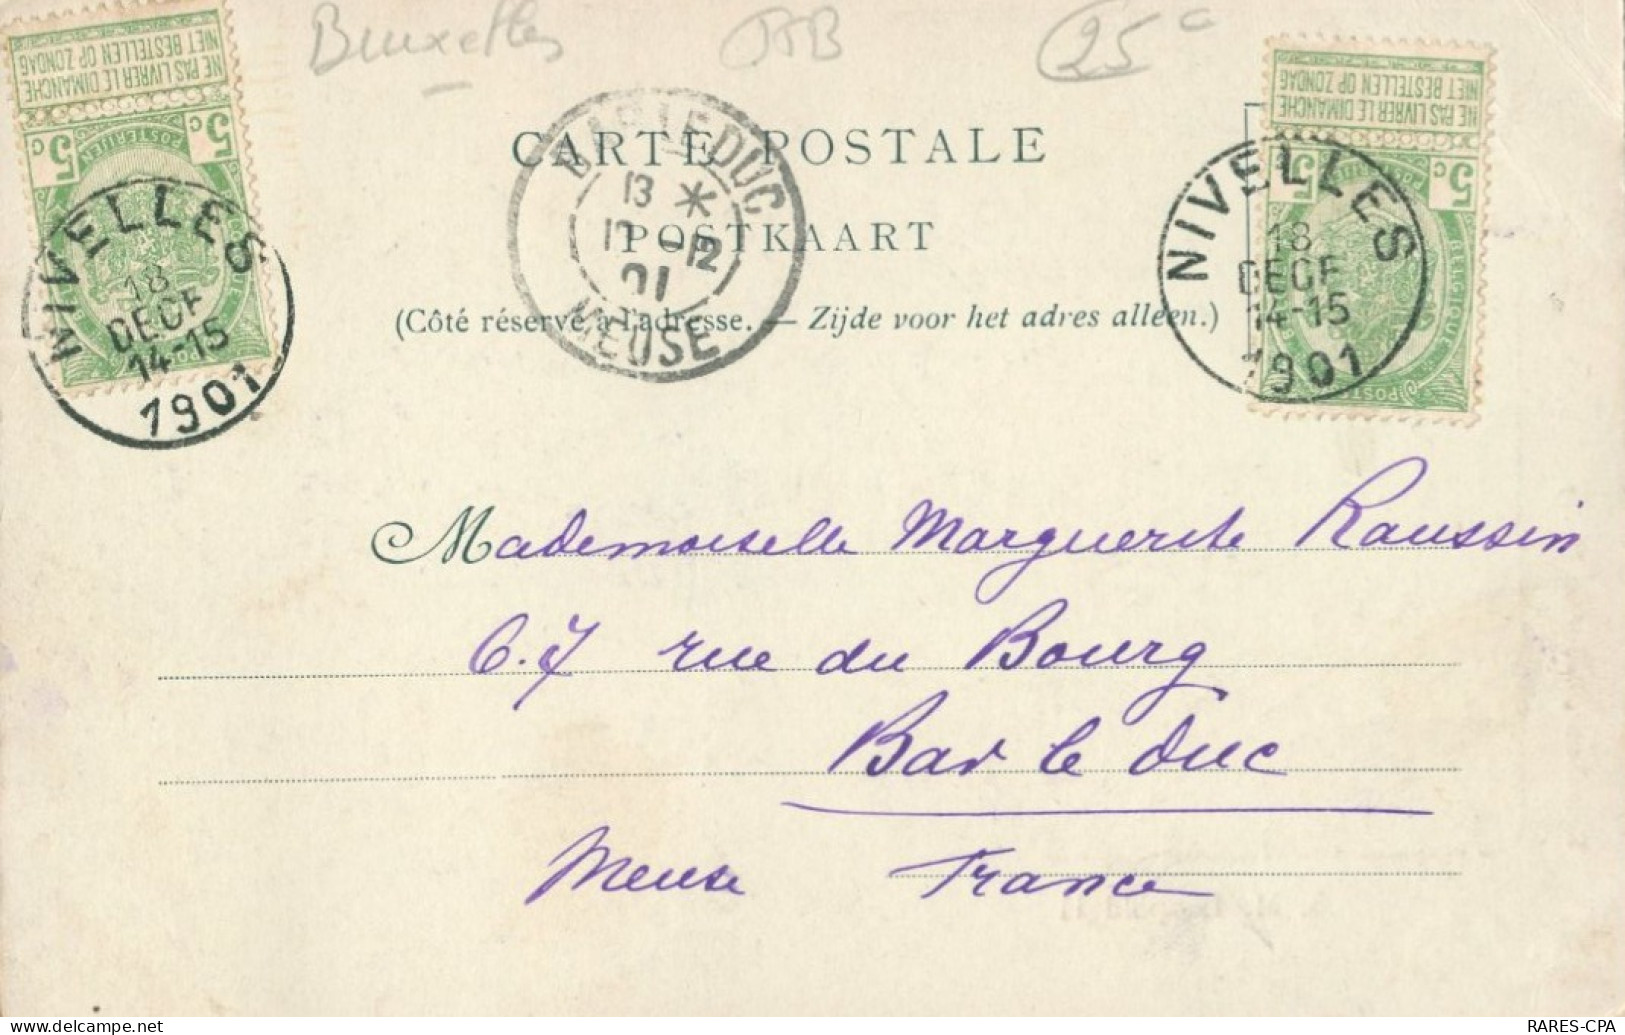 Bruxelles TTB 25c
NE PAS LIVRER LE DIMANCHE
NIET BESTELLEN OP ZONDAG
5c 5c
POSTERIJEN
NIVELLES
18
DECE
14-15
1901
CARTE POSTALE
POSTKAART
(Côté réservé à l'adresse. — Zijde voor het adres alleen.)
BAR LE DUC
13 *
12
01
MEUSE
NE PAS LIVRER LE DIMANCHE
NIET BESTELLEN OP ZONDAG
5c 5c
BELGIQUE
POSTES
NIVELLES
18
DECE
14-15
1901
Mademoiselle Marguerite Raussin
67 rue du Bourg
Bar le Duc
Meuse France
RARES-CPA
https://www.delcampe.net